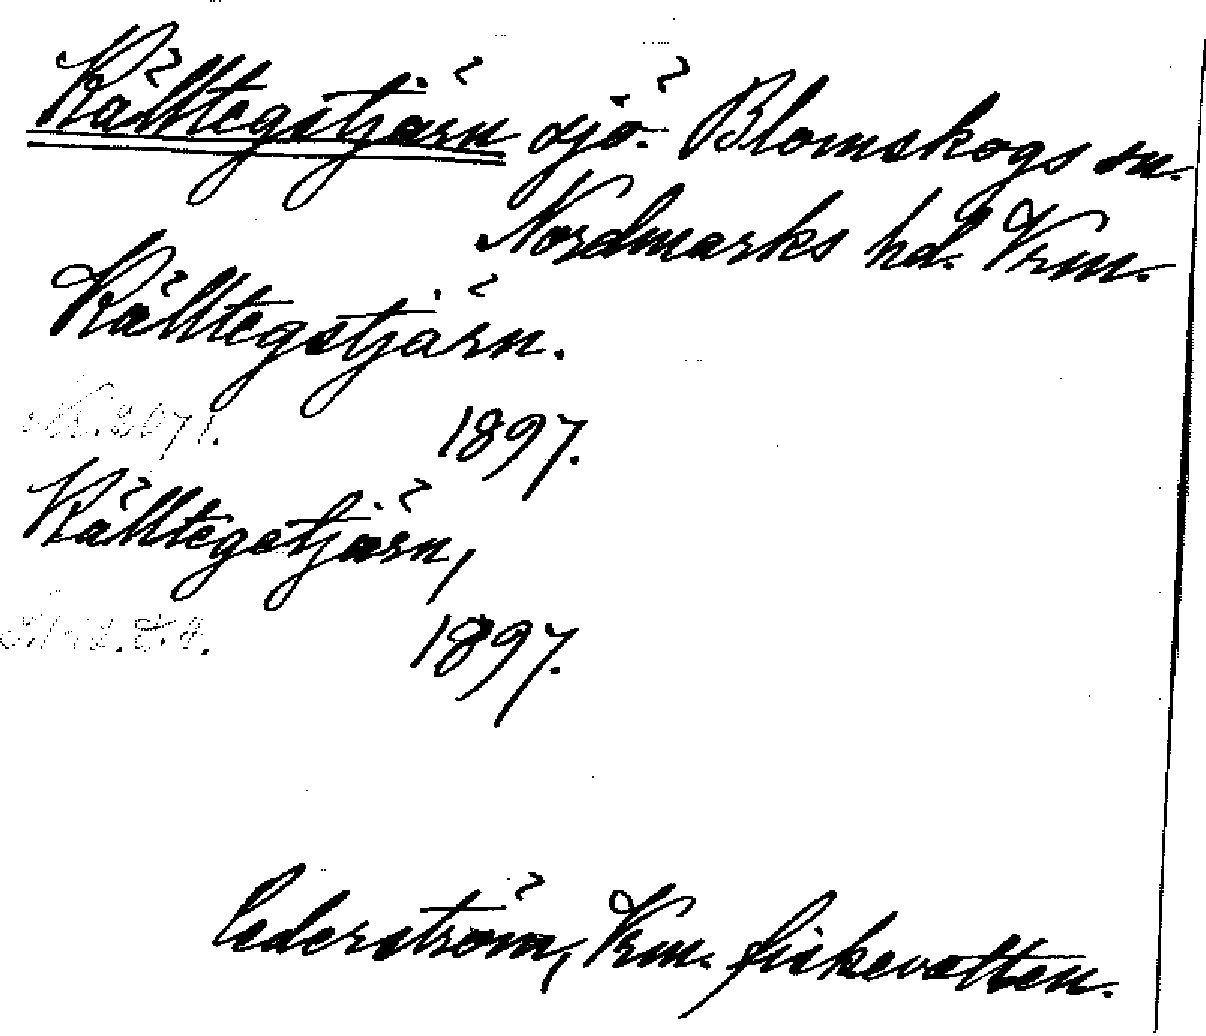 Källtegstjärn sjö. Blomskogs sn.
Nordmarks hd. Vrm.
Källtegstjärn.
1897.
Källtegstjärn,
1897.
Cederström, Vrm. fiskevatten.